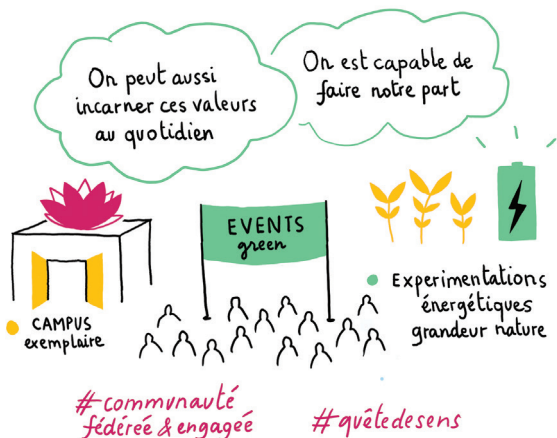 On peut aussi
incarner ces valeurs
au quotidien
On est capable de
faire notre part
EVENTS
green
CAMPUS
exemplaire
Experimentations
énergétiques
grandeur nature
#communauté
fédérée & engagée
#quêtedesens